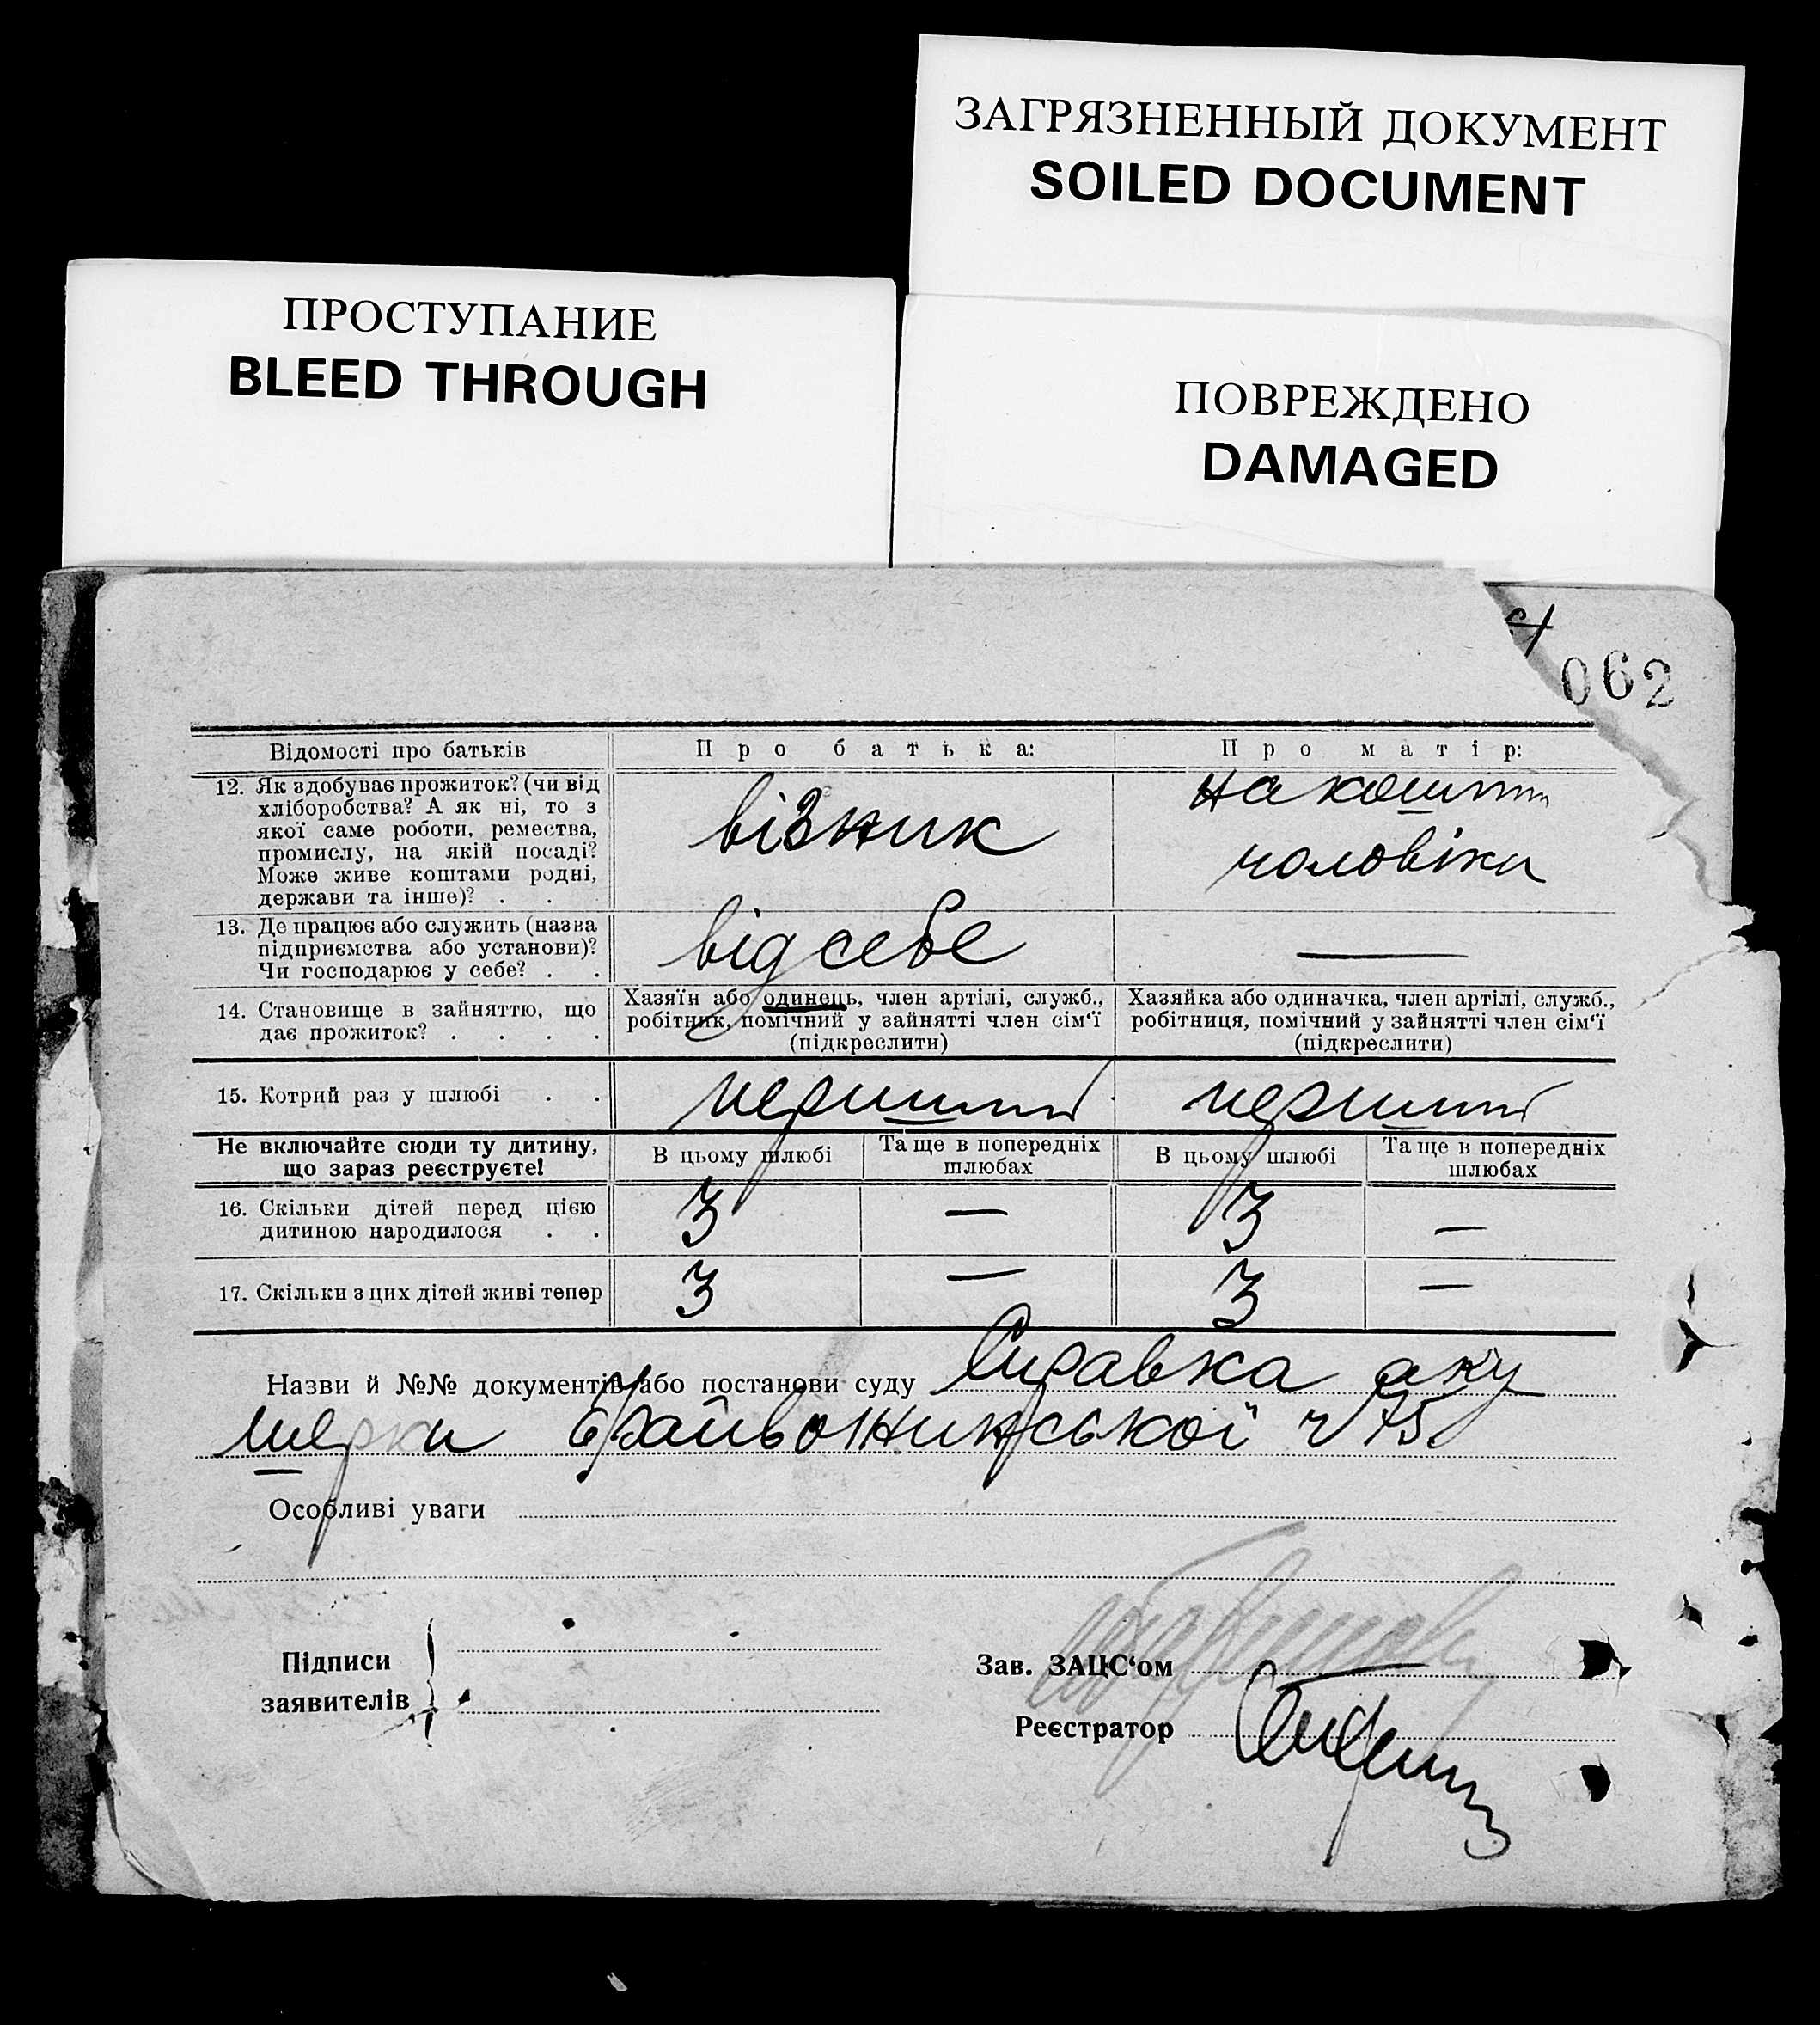 ЗАГРЯЗНЕННЫЙ ДОКУМЕНТ
SOILED DOCUMENT
ПРОСТУПАНИЕ
BLEED THROUGH
ПОВРЕЖДЕНО
DAMAGED
062
Відомості про батьків
Про батька:
Про матір:
12. Як здобуває прожиток? (чи від
хліборобства? А як ні, то з
якої саме роботи, ремества,
промислу, на якій посаді?
Може живе коштами родні,
держави та інше)? . .
візник
на кошти
чоловіка
13. Де працює або служить (назва
підприємства або установи)?
Чи господарює у себе? . .
від себе
—
14. Становище в зайняттю, що
дає прожиток? . . . .
Хазяїн або одинець, член артілі, служб.,
робітник, помічний у зайнятті член сім‘ї
(підкреслити)
Хазяйка або одиначка, член артілі, служб.,
робітниця, помічний у зайнятті член сім‘ї
(підкреслити)
15. Котрий раз у шлюбі . .
перший
перший
Не включайте сюди ту дитину,
що зараз реєструєте!
В цьому шлюбі
Та ще в попередніх
шлюбах
В цьому шлюбі
Та ще в попередніх
шлюбах
16. Скільки дітей перед цією
дитиною народилося . .
3 — 3 —
17. Скільки з цих дітей живі тепер
3 — 3 —
Назви й №№ документів або постанови суду Справка аку
шерки
Особливі уваги
Підписи
заявителів
Зав. ЗАЦС‘ом
Реєстратор